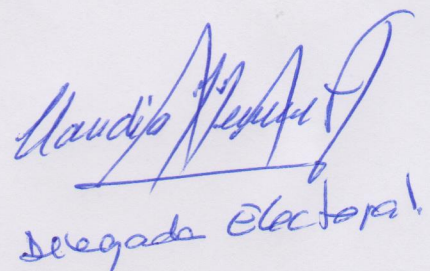 Claudia
Delegada Electoral.